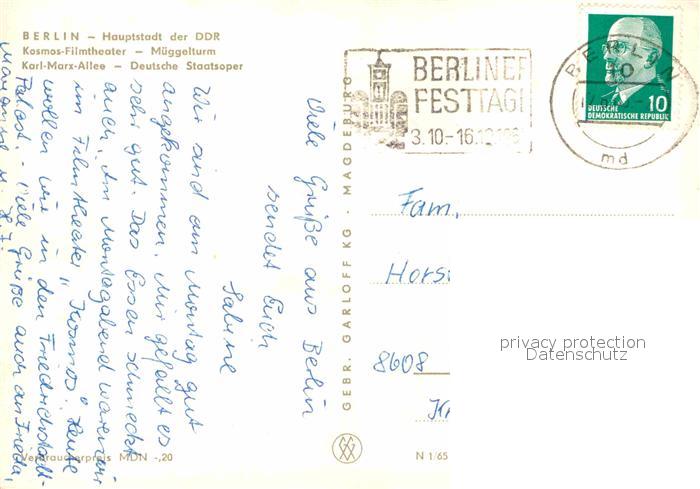 BERLIN – Hauptstadt der DDR
Kosmos-Filmtheater – Müggelturm
Karl-Marx-Allee – Deutsche Staatsoper
Viele Grüße aus Berlin
sendet Euch
Sabine
Wir sind am Montag gut
angekommen. Mir gefällt es
sehr gut. Das Essen schmeckt
auch. Am Montagabend waren wir
im Filmtheater „Kosmos". Heute
wollen wir in den Friedrichstadt-
Palast. Viele Grüße auch an Frieda,
Verbraucherpreis MDN -,20
GEBR. GARLOFF KG · MAGDEBURG
N 1/65
BERLINER
FESTTAGE
3.10.–16.10.
BERLIN
md
DEUTSCHE
DEMOKRATISCHE REPUBLIK
10
Fam.
Hors
8608
privacy protection
Datenschutz